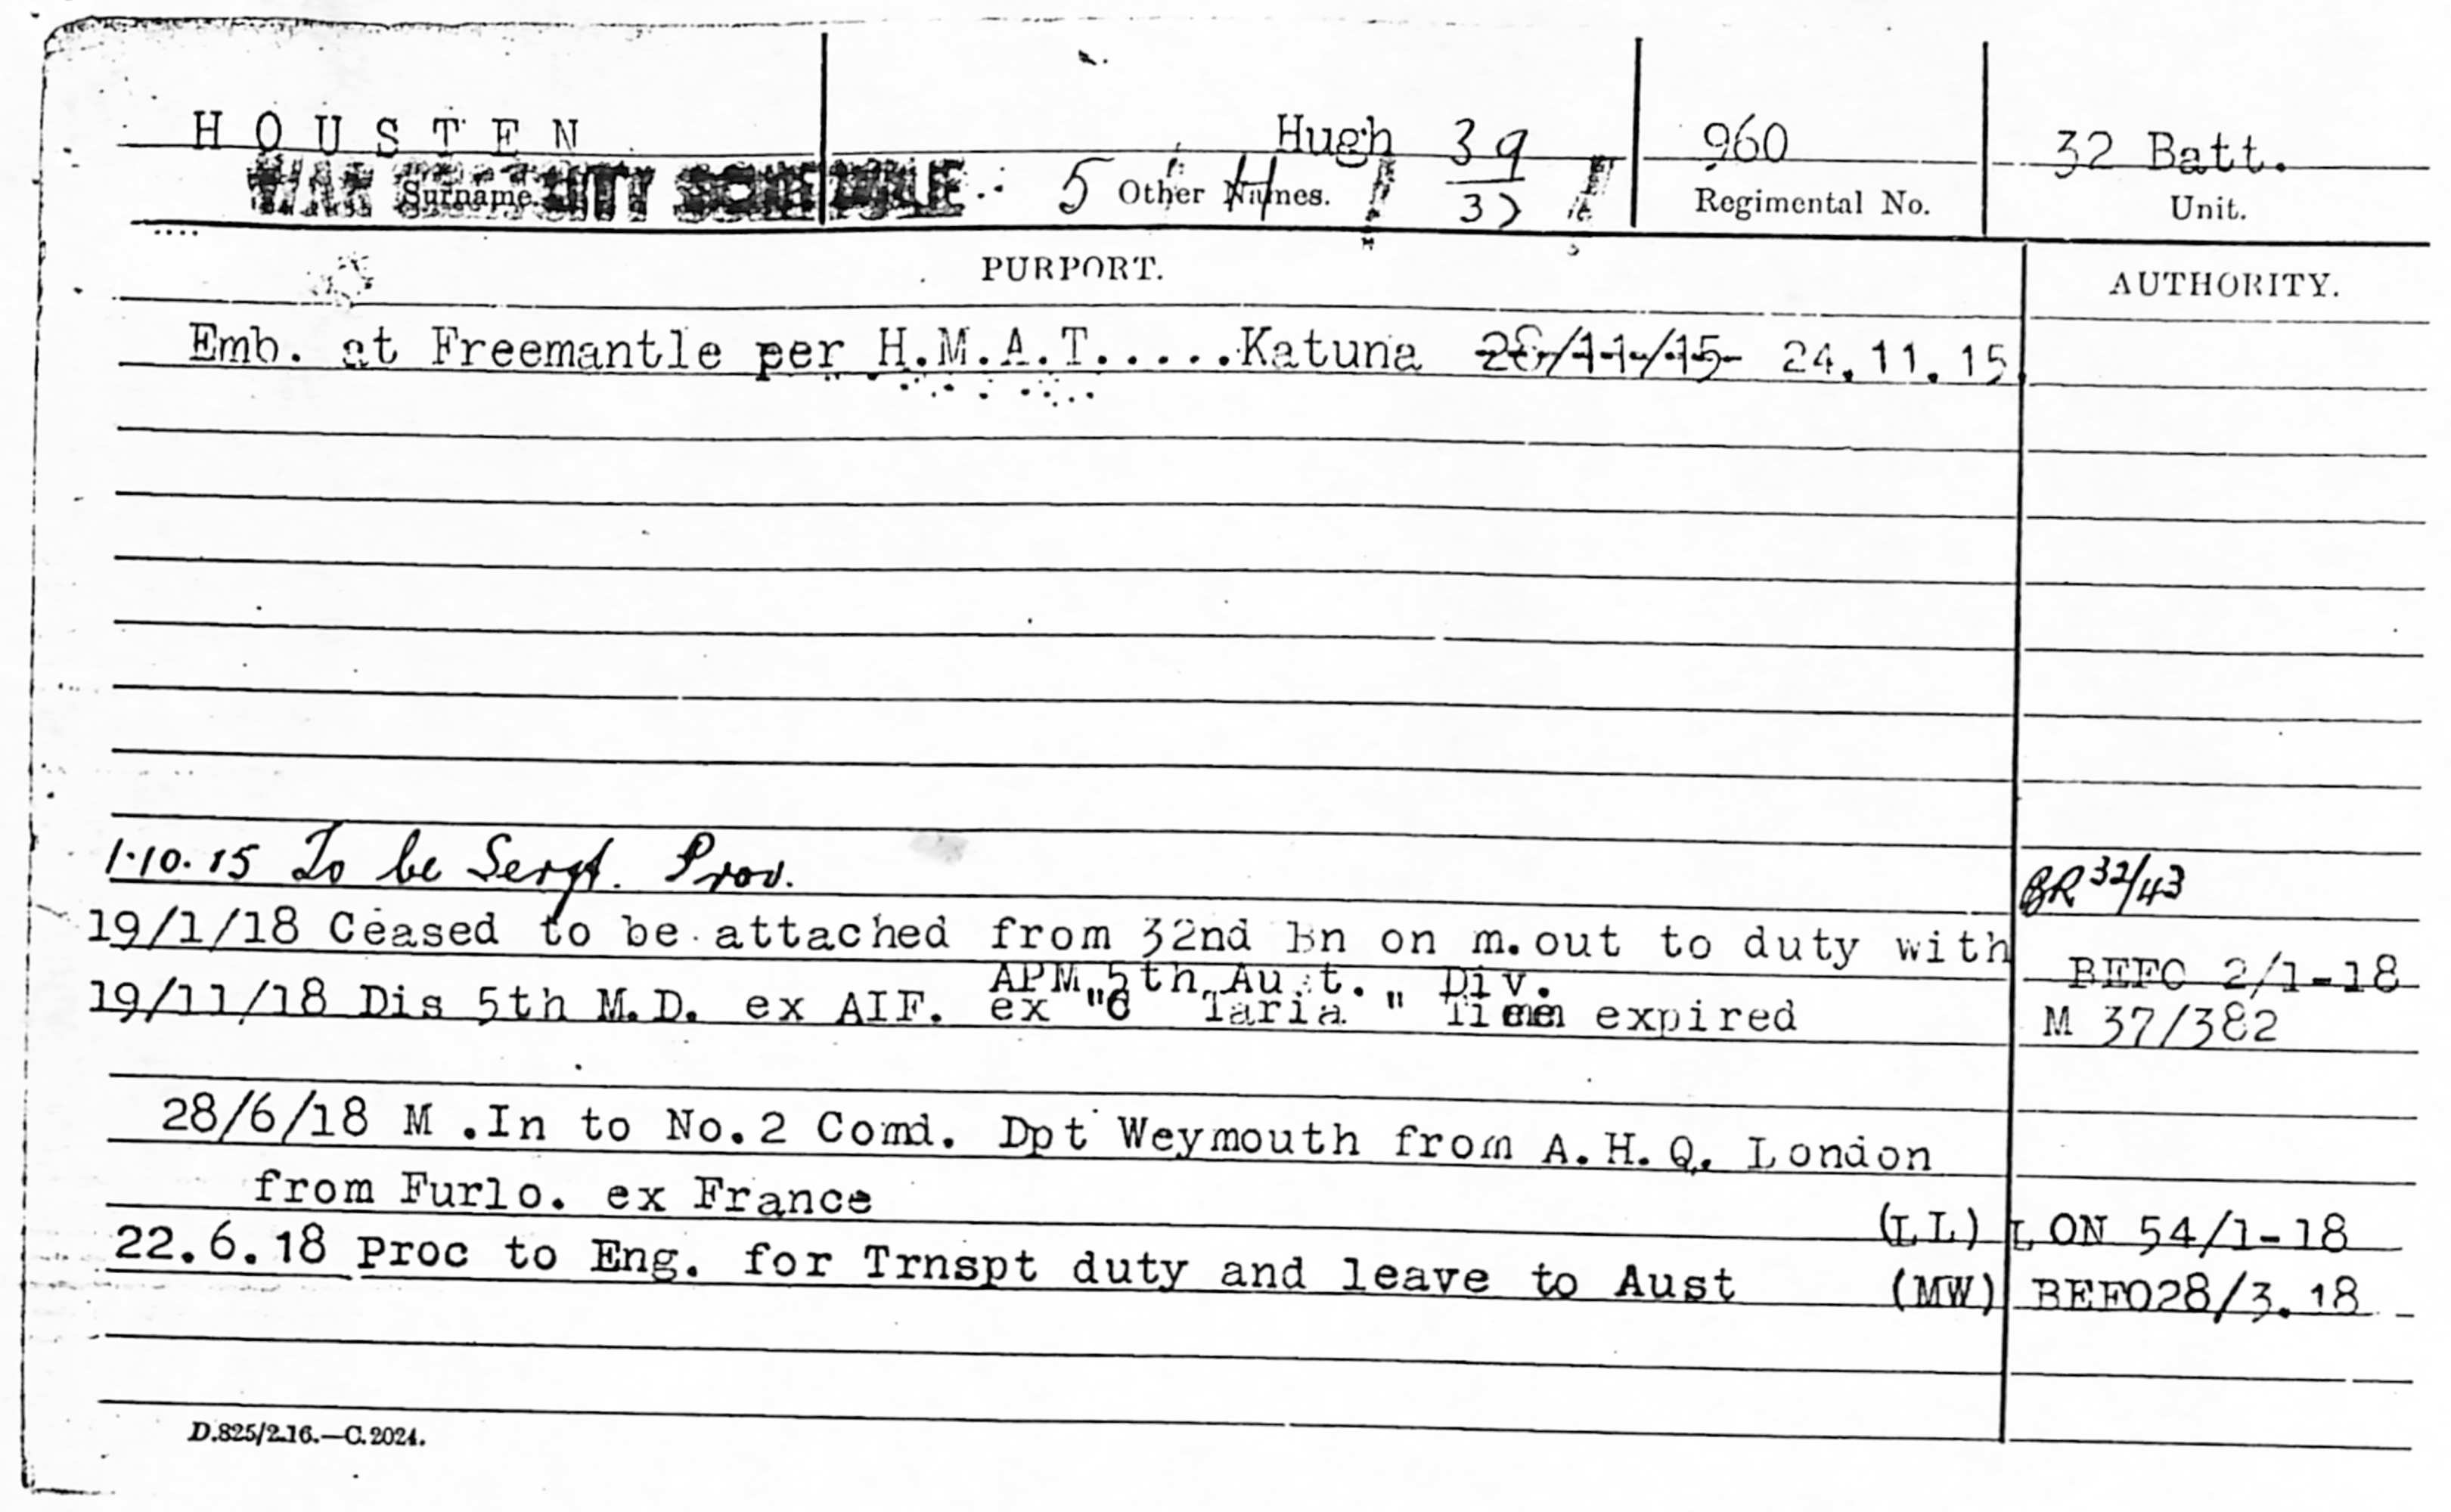 H O U S T E N Hugh 39 960 32 Batt.
WAR GRATUITY SCHEDULE 5 H 37
Surname. Other Names. Regimental No. Unit.
PURPORT. AUTHORITY.
Emb. at Freemantle per H.M.A.T.....Katuna 26/11/15- 24.11.15
1.10.15 To be Sergt. Prov. BR 32/43
19/1/18 Ceased to be attached from 32nd Bn on m.out to duty with
APM 5th Aust. Div. BEFO 2/1-18
19/11/18 Dis 5th M.D. ex AIF. ex " Taria " expired M 37/382
28/6/18 M .In to No.2 Comd. Dpt Weymouth from A.H.Q. London
from Furlo. ex France (LL) LON 54/1-18
22.6.18 Proc to Eng. for Trnspt duty and leave to Aust (MW) BEFO28/3.18
D.825/2.16.—C.2024.